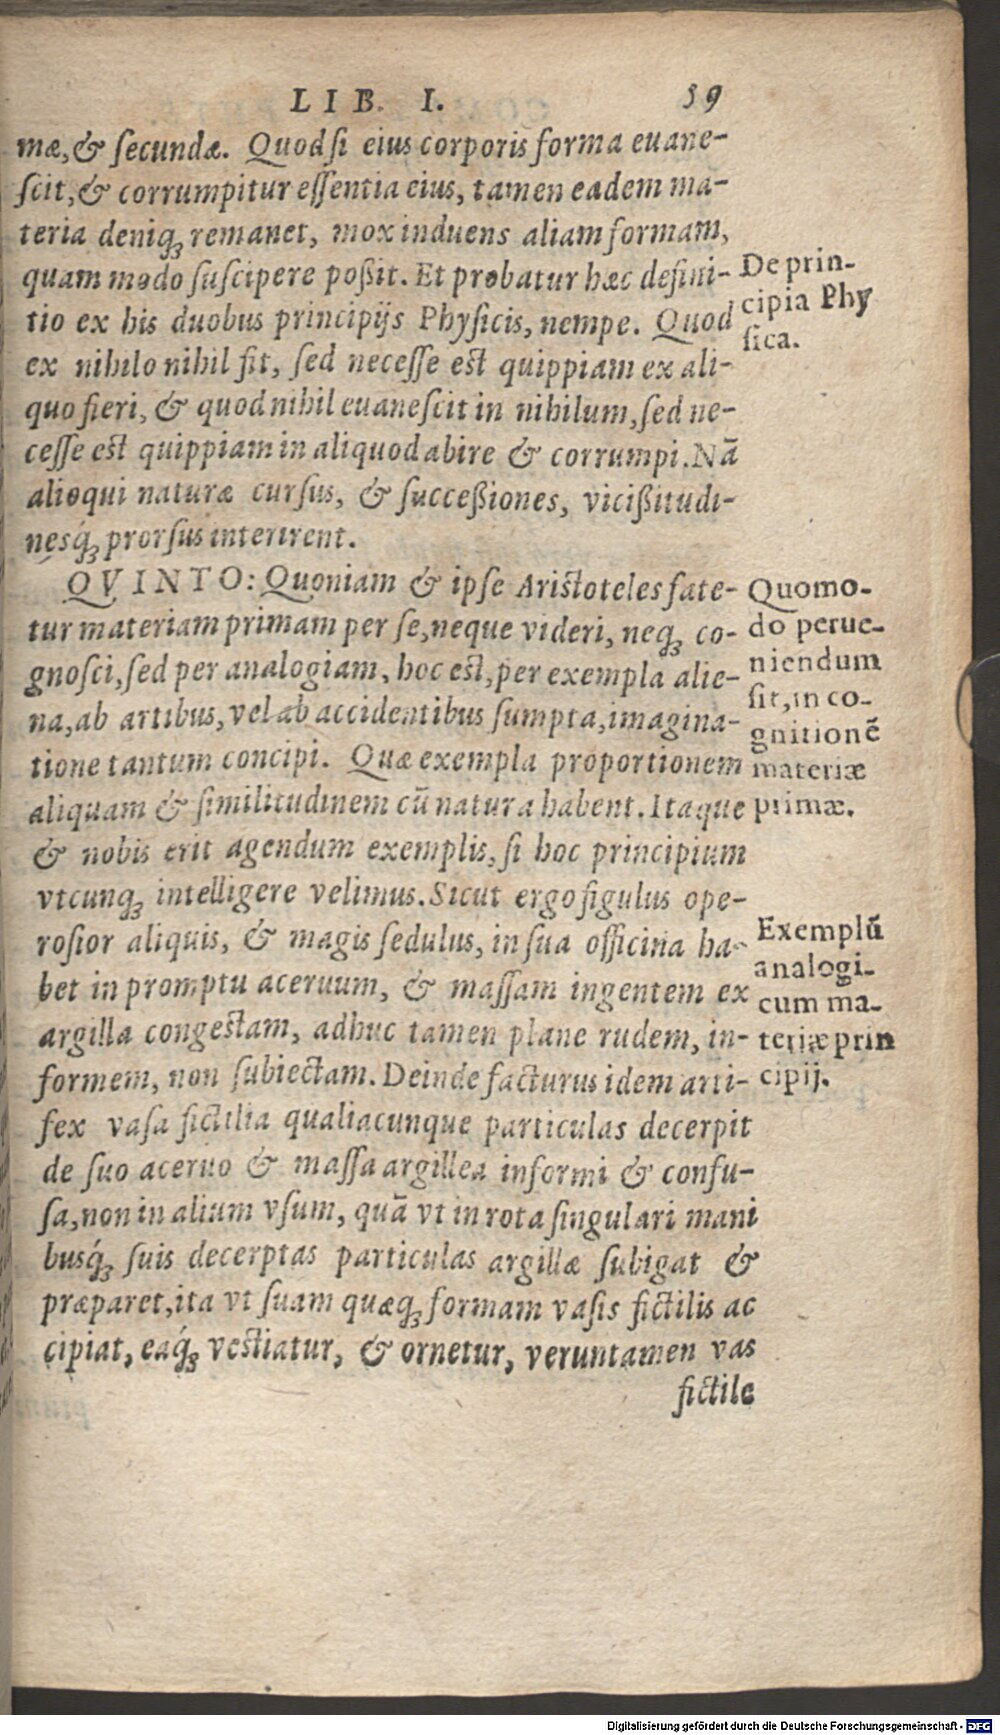 LIB. I. 59
mæ, & ſecundæ. Quodſi eius corporis forma euane-
ſcit, & corrumpitur eſſentia eius, tamen eadem ma-
teria deniqꝫ remanet, mox induens aliam formam,
quam modo ſuſcipere poßit. Et probatur hæc defini-
tio ex his duobus principijs Phyſicis, nempe. Quod
ex nihilo nihil fit, ſed neceſſe est quippiam ex ali-
quo fieri, & quod nihil euaneſcit in nihilum, ſed ne-
ceſſe est quippiam in aliquod abire & corrumpi. Nā
alioqui naturæ curſus, & ſucceßiones, vicißitudi-
nesq́ꝫ prorſus interirent.
De prin-
cipia Phy
ſica.
QVINTO: Quoniam & ipſe Ariſtoteles fate-
tur materiam primam per ſe, neque videri, neqꝫ co-
gnoſci, ſed per analogiam, hoc est, per exempla alie-
na, ab artibus, vel ab accidentibus ſumpta, imagina-
tione tantum concipi. Quæ exempla proportionem
aliquam & ſimilitudinem cū natura habent. Itaque
& nobis erit agendum exemplis, ſi hoc principium
vtcunqꝫ intelligere velimus. Sicut ergo figulus ope-
roſior aliquis, & magis ſedulus, in ſua officina ha-
bet in promptu aceruum, & maſſam ingentem ex
argilla congeſtam, adhuc tamen plane rudem, in-
formem, non ſubiectam. Deinde facturus idem arti-
fex vaſa fictilia qualiacunque particulas decerpit
de ſuo aceruo & maſſa argillea informi & confu-
ſa, non in alium vſum, quā vt in rota ſingulari mani
busq́ꝫ ſuis decerptas particulas argillæ ſubigat &
præparet, ita vt ſuam quæqꝫ formam vaſis fictilis ac
cipiat, eaq́ꝫ veſtiatur, & ornetur, veruntamen vas
fictile
Quomo-
do perue-
niendum
ſit, in co-
gnitionē
materiæ
primæ.
Exemplū
analogi-
cum ma-
teriæ prin
cipij.
Digitalisierung gefördert durch die Deutsche Forschungsgemeinschaft - DFG